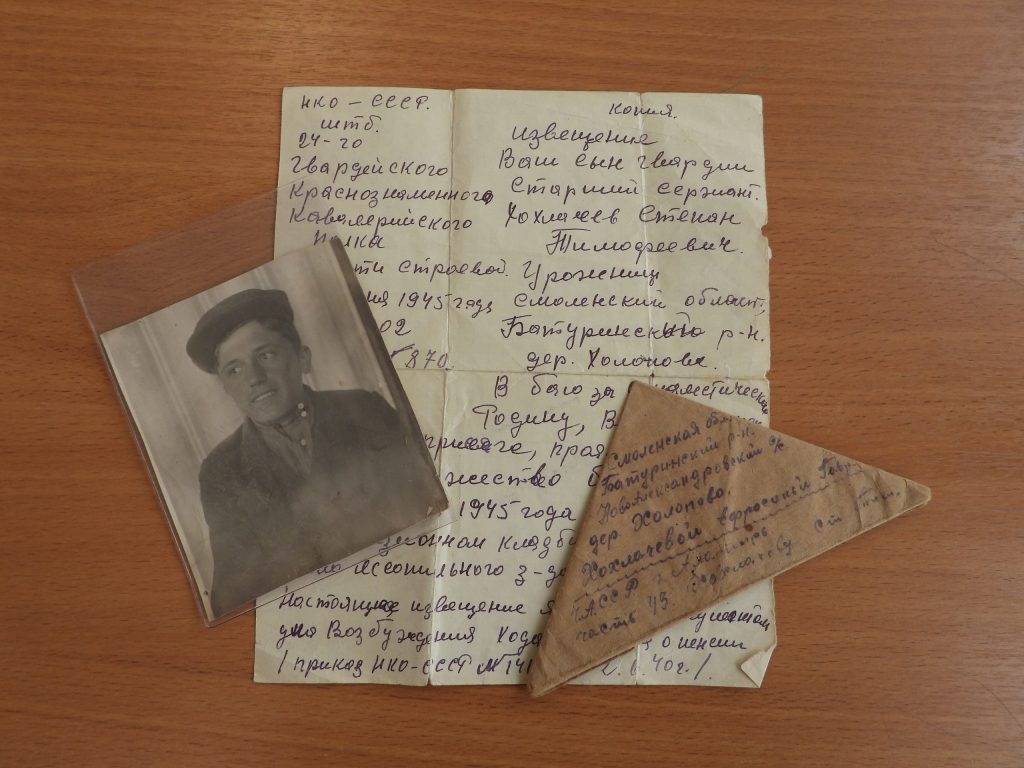 НКО – СССР.
штб.
24-го
Гвардейского
Краснознаменного
Кавалерийского
Полка
ти строевой.
ия 1945 года
02
870.
Копия.
извещение
Ваш сын гвардии
Старший сержант.
Хохлачев Степан
Тимофеевич.
Уроженец
Смоленский област,
Батуринского р-н.
дер. Холопова.
В бою за
Родину, В
присяге,
жество
1945 года
ионном кладб
ло лесопильного з-д
Настоящее извещение
для Возбуждения Хода о пенсии
/приказ НКО-СССР № 2.6.40г./
Смоленская
Батуринский р-н.
Новоалександровский с/с
дер. Холопово.
Хохлачевой Ефросиньи
ТАССР г.
часть 43. Хохлачеву